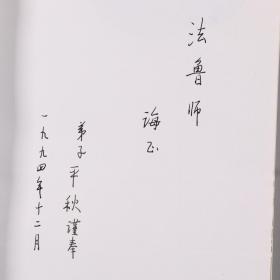 法鲁师
诲正
弟子平秋谨奉
一九九四年十二月